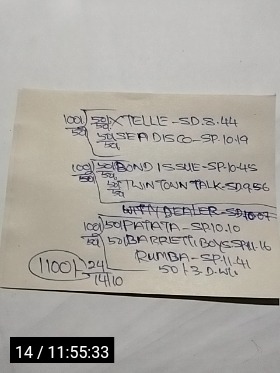 100) 50) XTELLE-SD.8.44
50 50) SEA DISCO-SP.10.19
50
100) 50) BOND ISSUE-SP.10-45
50 50) TWIN TOWN TALK-SD9.56
WITTY DEALER-SD10-07
100) 50) PATATA-SP.10.10
50) BARRETTI BOYS-SP.11-16
RUMBA-SP.11.41
1100 24 50/-3.D.W
14/10
14 / 11:55:33